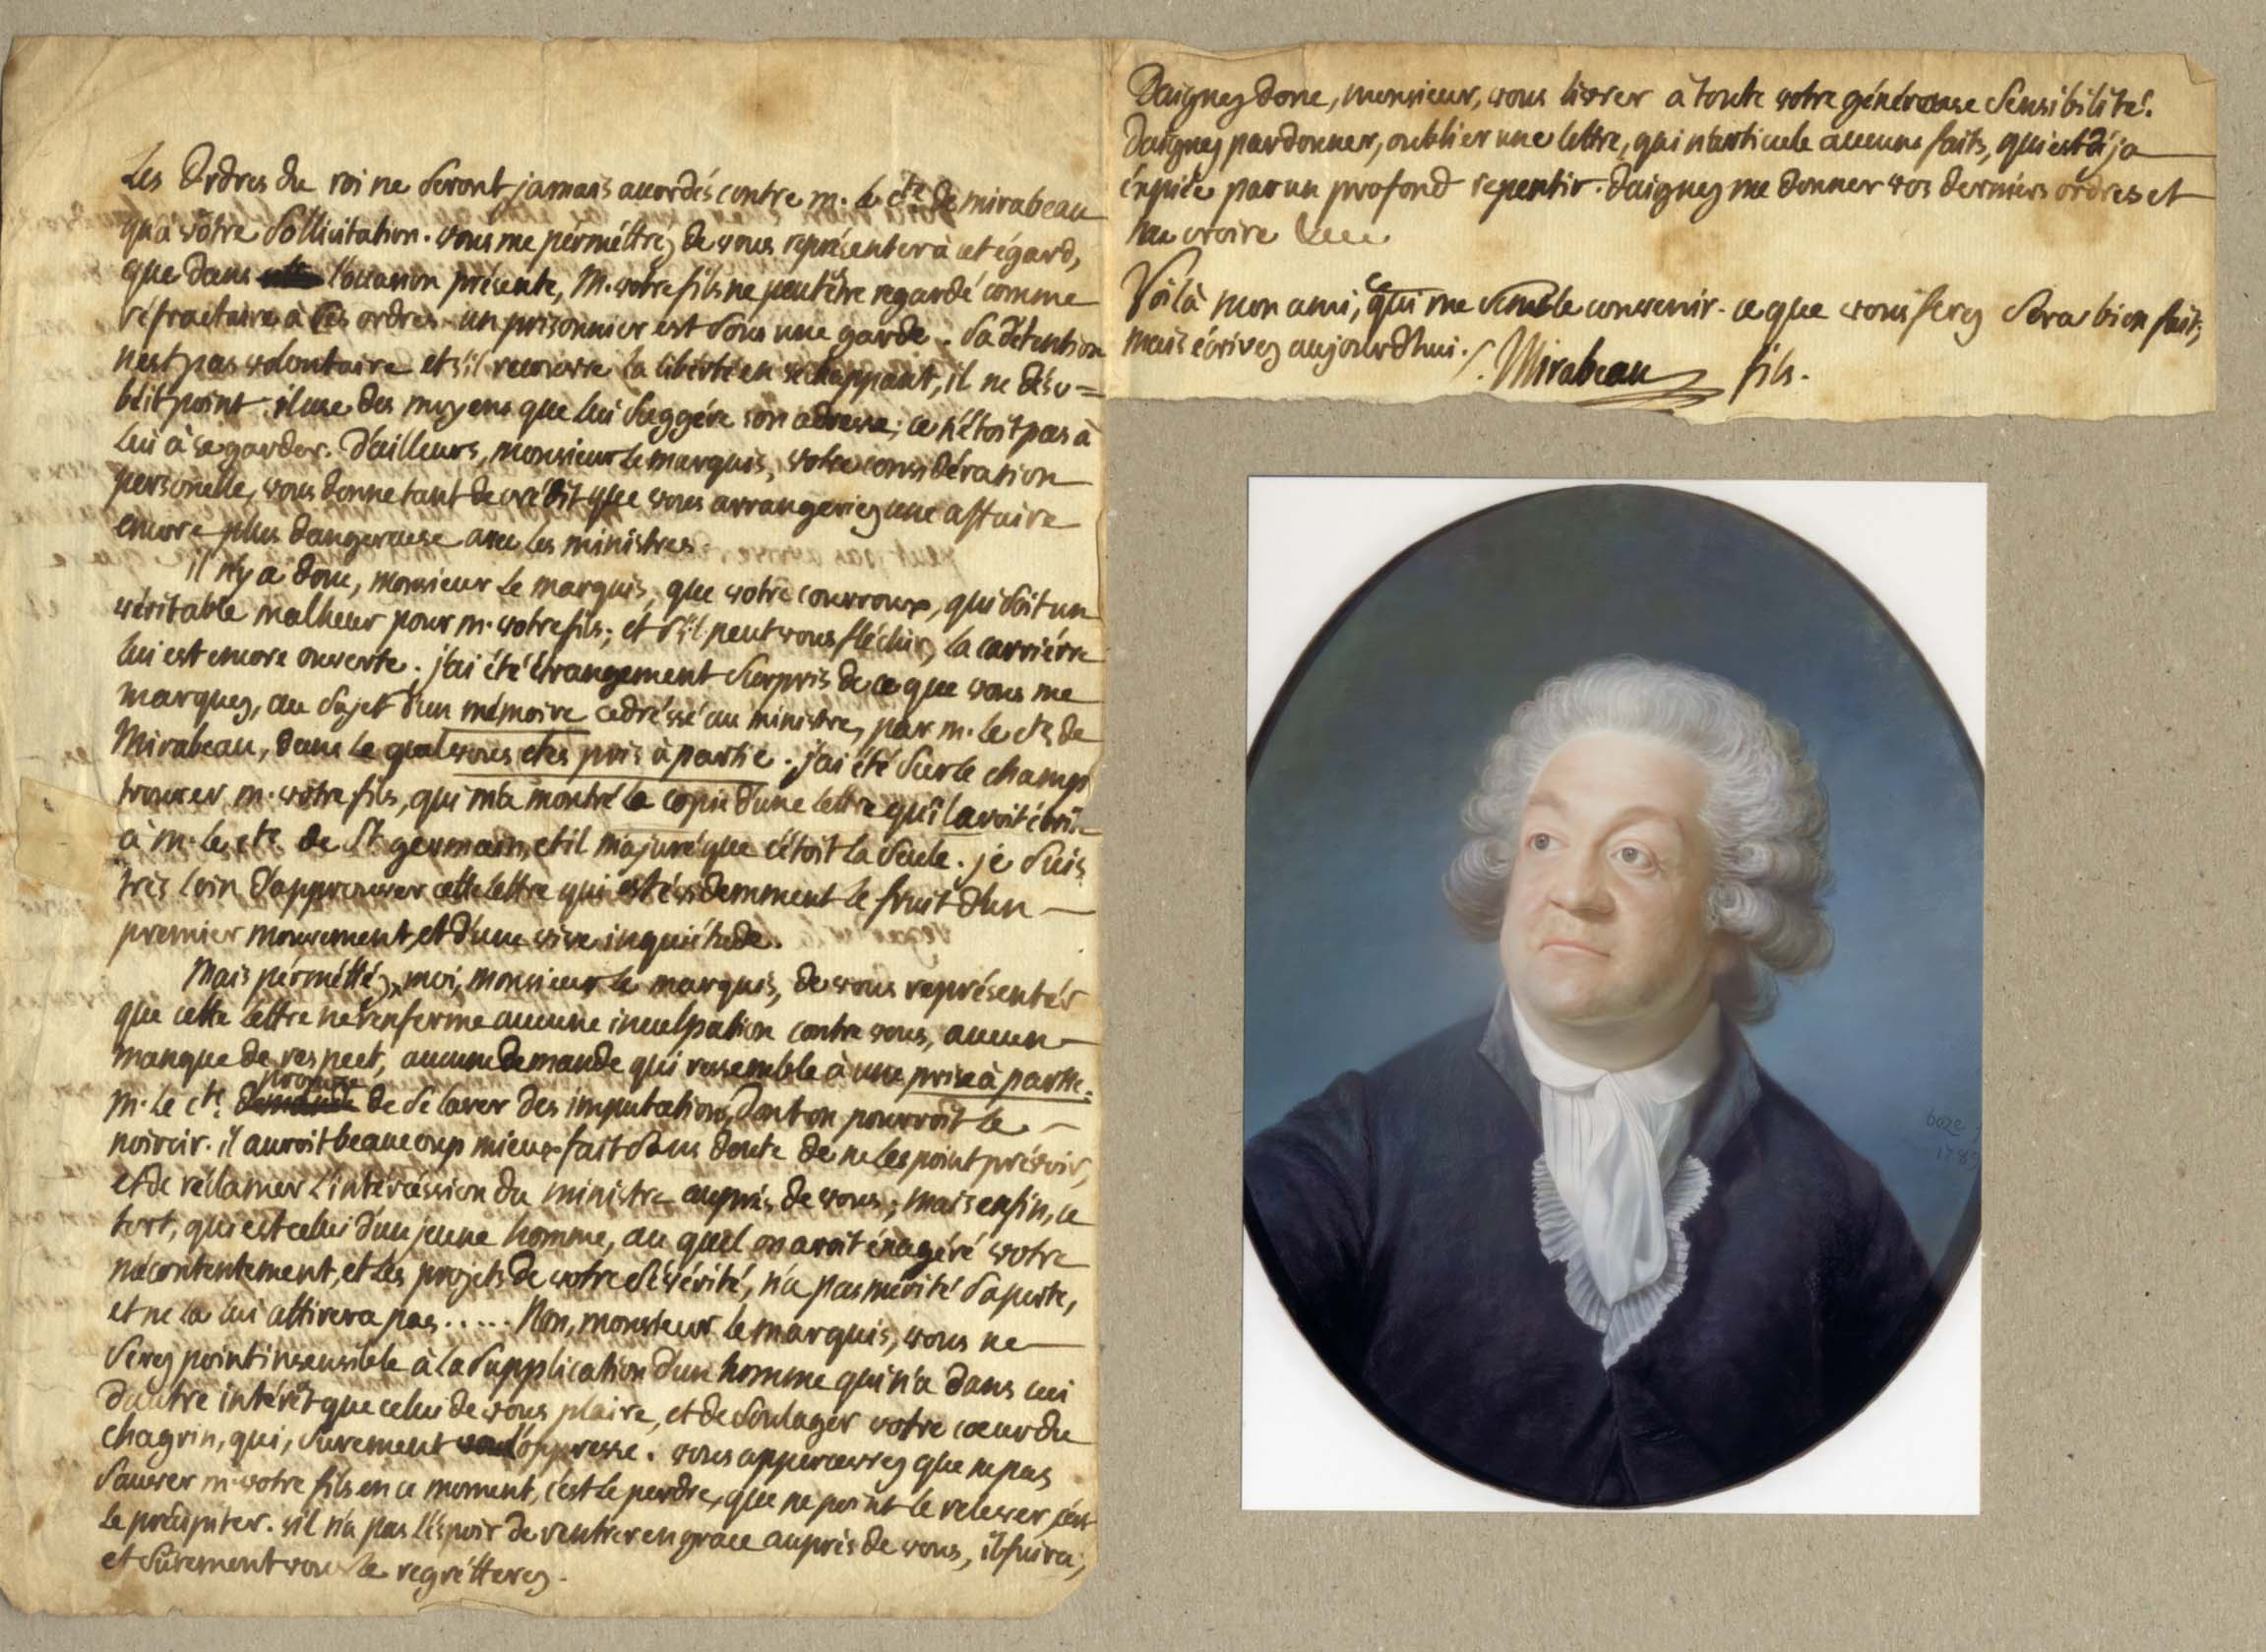 Les Ordres du roi ne seront jamais accordés contre m. le cte de mirabeau
qu'à vôtre sollicitation. vous me pérméttréz de vous représenter à cet égard,
que dans l'occasion présente, M. votre fils ne peut être regardé comme
réfractaire à ses ordres. un prisonnier est sous une garde. sa détention
n'est pas volontaire et s'il recouvre la liberté en s'échappant, il ne déso=
béit point. il use des moyens que lui suggére son adresse; ce n'étoit pas à
lui à se garder. D'ailleurs, monsieur le marquis, votre considération
personelle, vous donne tant de crédit que vous arrangeriez une affaire
encore plus dangereuse avec les ministres.
il n'y a donc, monsieur le marquis, que votre courroux, qui soit un
véritable malheur pour m. votre fils; et s'il peut vous fléchir, la carriére
lui est encore ouverte. j'ai été étrangement surpris de ce que vous me
marquez, au sujet d'un mémoire adréssé au ministre, par m. le cte de
Mirabeau, dans le quel vous etes pris à partie. j'ai été sur le champ
trouver m. votre fils, qui m'a montré la copie d'une lettre qu'il avoit écrite
à m. le cte de St germain, et il m'a juré que c'étoit la seule. je suis
très loin d'approuver cette lettre qui est évidemment le fruit d'un
premier mouvement, et d'une vive inquiétude.
Mais pérméttéz moi, monsieur le marquis, de vous représenter
que cette lettre ne renferme aucune inculpation contre vous, aucun
manque de respect, aucune demande qui ressemble à une prise à partie.
propose
m. le cte demande de se laver des imputations dont on pourroit le
noircir. il auroit beaucoup mieux fait sans doute de ne les point prévoir,
et de réclamer l'intércéssion du ministre auprès de vous; mais enfin, ce
tort, qui est celui d'un jeune homme, au quel on avoit éxagéré votre
mécontentement, et les projets de votre sévérité, n'a pas mérité sa perte,
et ne la lui attirera pas..... Non, monsieur le marquis, vous ne
serez point insensible à la supplication d'un homme qui n'a dans ceci
d'autre intérêt que celui de vous plaire, et de soulager votre cœur du
chagrin, qui, surement l'oppresse. vous appercevrez que ne pas
sauver m. votre fils en ce moment, c'est le perdre, que ne point le relever c'est
le précipiter. s'il n'a pas l'éspoir de rentrer en grace auprès de vous, il fuira,
et surement vous le regrétterez.
Daignez donc, monsieur, vous livrer à toute votre généreuse sensibilité.
Daignez pardonner, oublier une lettre, qui n'articule aucuns faits, qui est déja
éxpiée par un profond repentir. daignez me donner vos derniers ordres et
me croire
Voilà mon ami, ce qui me semble convenir. ce que vous ferez sera bien fait;
mais écrivez aujourdhui. Mirabeau fils.
boze
178